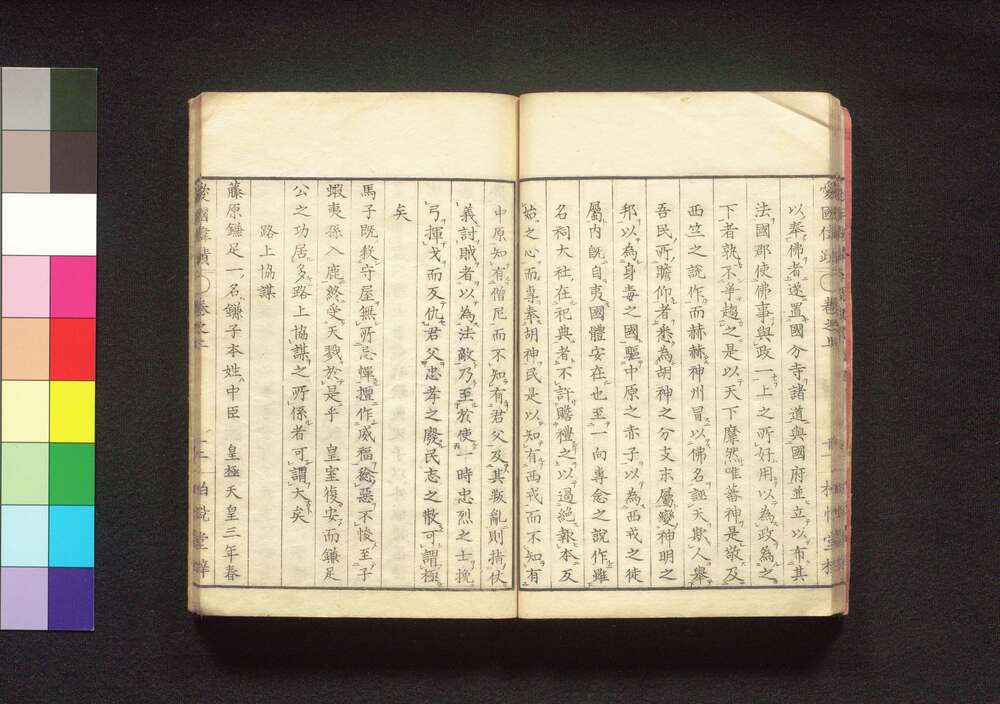 以奉佛者遂置國分寺諸道與國府並立以布其
法國郡使佛事與政一上之所好用以為政為之
下者孰不爭趨之是以天下靡然唯蕃神是敬及
西竺之說作而赫赫神州冒以佛名誣天欺人舉
吾民所瞻仰者悉為胡神之分支末屬變神明之
邦以為身毒之國驅中原之赤子以為西戎之徒
屬內既自夷國體安在也至一向專念之說作雖
名祠大社在祀典者不許瞻禮之以遏絕報本反
始之心而專奉胡神民是以知有西戎而不知有
中原知有僧尼而不知有君父及其叛亂則指仗
義討賊者以為法敵乃至於使一時忠烈之士挽
弓揮戈而反仇君父忠孝之廢民志之散可謂極
矣
馬子既殺守屋無所忌憚擅作威福稔惡不悛至子
蝦夷孫入鹿終受天戮於是乎 皇室復安而鎌足
公之功居多路上協謀之所係者可謂大矣
路上協謀
藤原鎌足一名鎌子本姓中臣 皇極天皇三年春